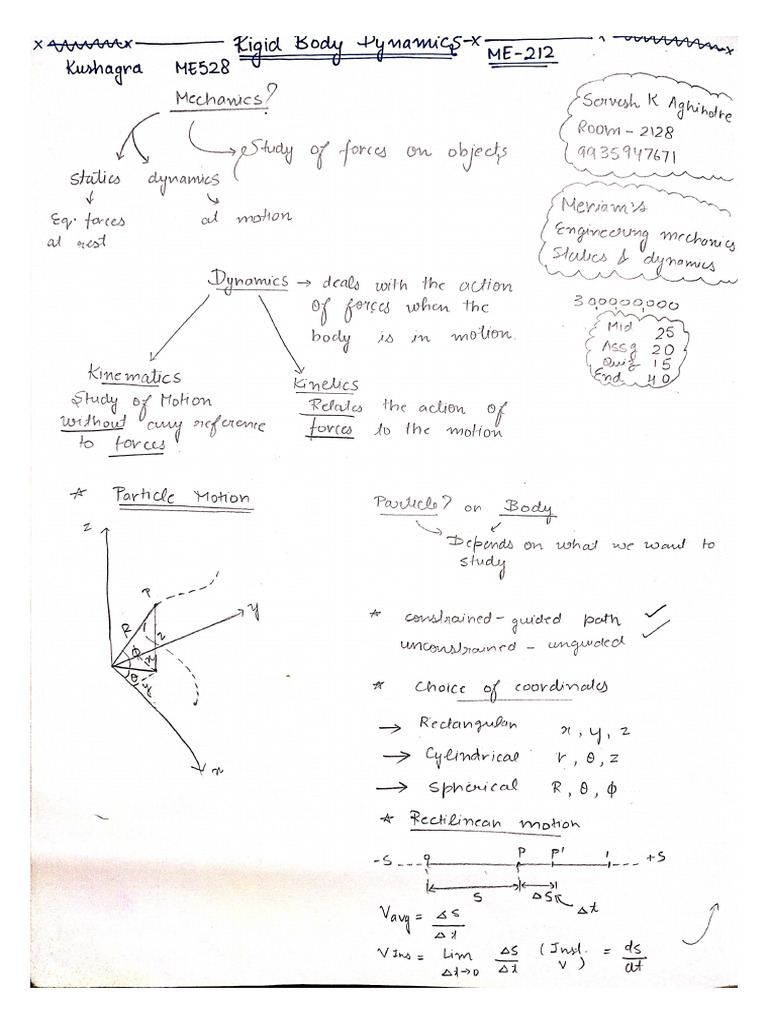 x x Rigid Body Dynamics x x
ME-212
Kushagra ME528
Mechanics?
Study of forces on objects
Statics dynamics
Eq. forces
at rest
at motion
Servesh K
Room - 2128
9935947671
Meriam's
Engineering mechanics
Statics & dynamics
300,000,000
Mid 25
Assg 20
Quiz 15
End 40
Dynamics → deals with the action
of forces when the
body is in motion.
Kinematics
Study of Motion
without any reference
to forces
Kinetics
Relates the action of
forces to the motion
* Particle Motion
z
P
R
y
z
ϕ
θ
x
Particle? or Body
Depends on what we want to
study
* constrained - guided path ✓
unconstrained - unguided ✓
* Choice of coordinates
→ Rectangular x, y, z
→ Cylindrical r, θ, z
→ Spherical R, θ, ϕ
* Rectilinear motion
-S P P' +S
S ΔS Δt
Vavg = ΔS/Δt
V Ins = Lim Δt→0 ΔS/Δt (Inst. V) = ds/dt